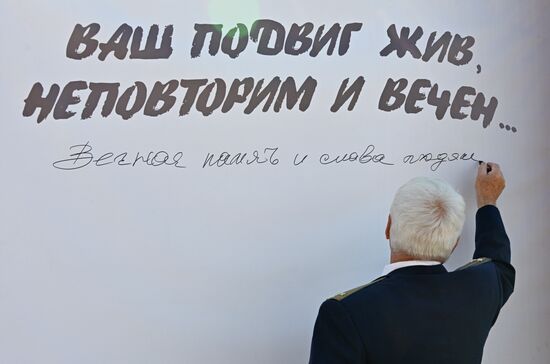 ВАШ ПОДВИГ ЖИВ,
НЕПОВТОРИМ И ВЕЧЕН...
Вечная память и слава людям